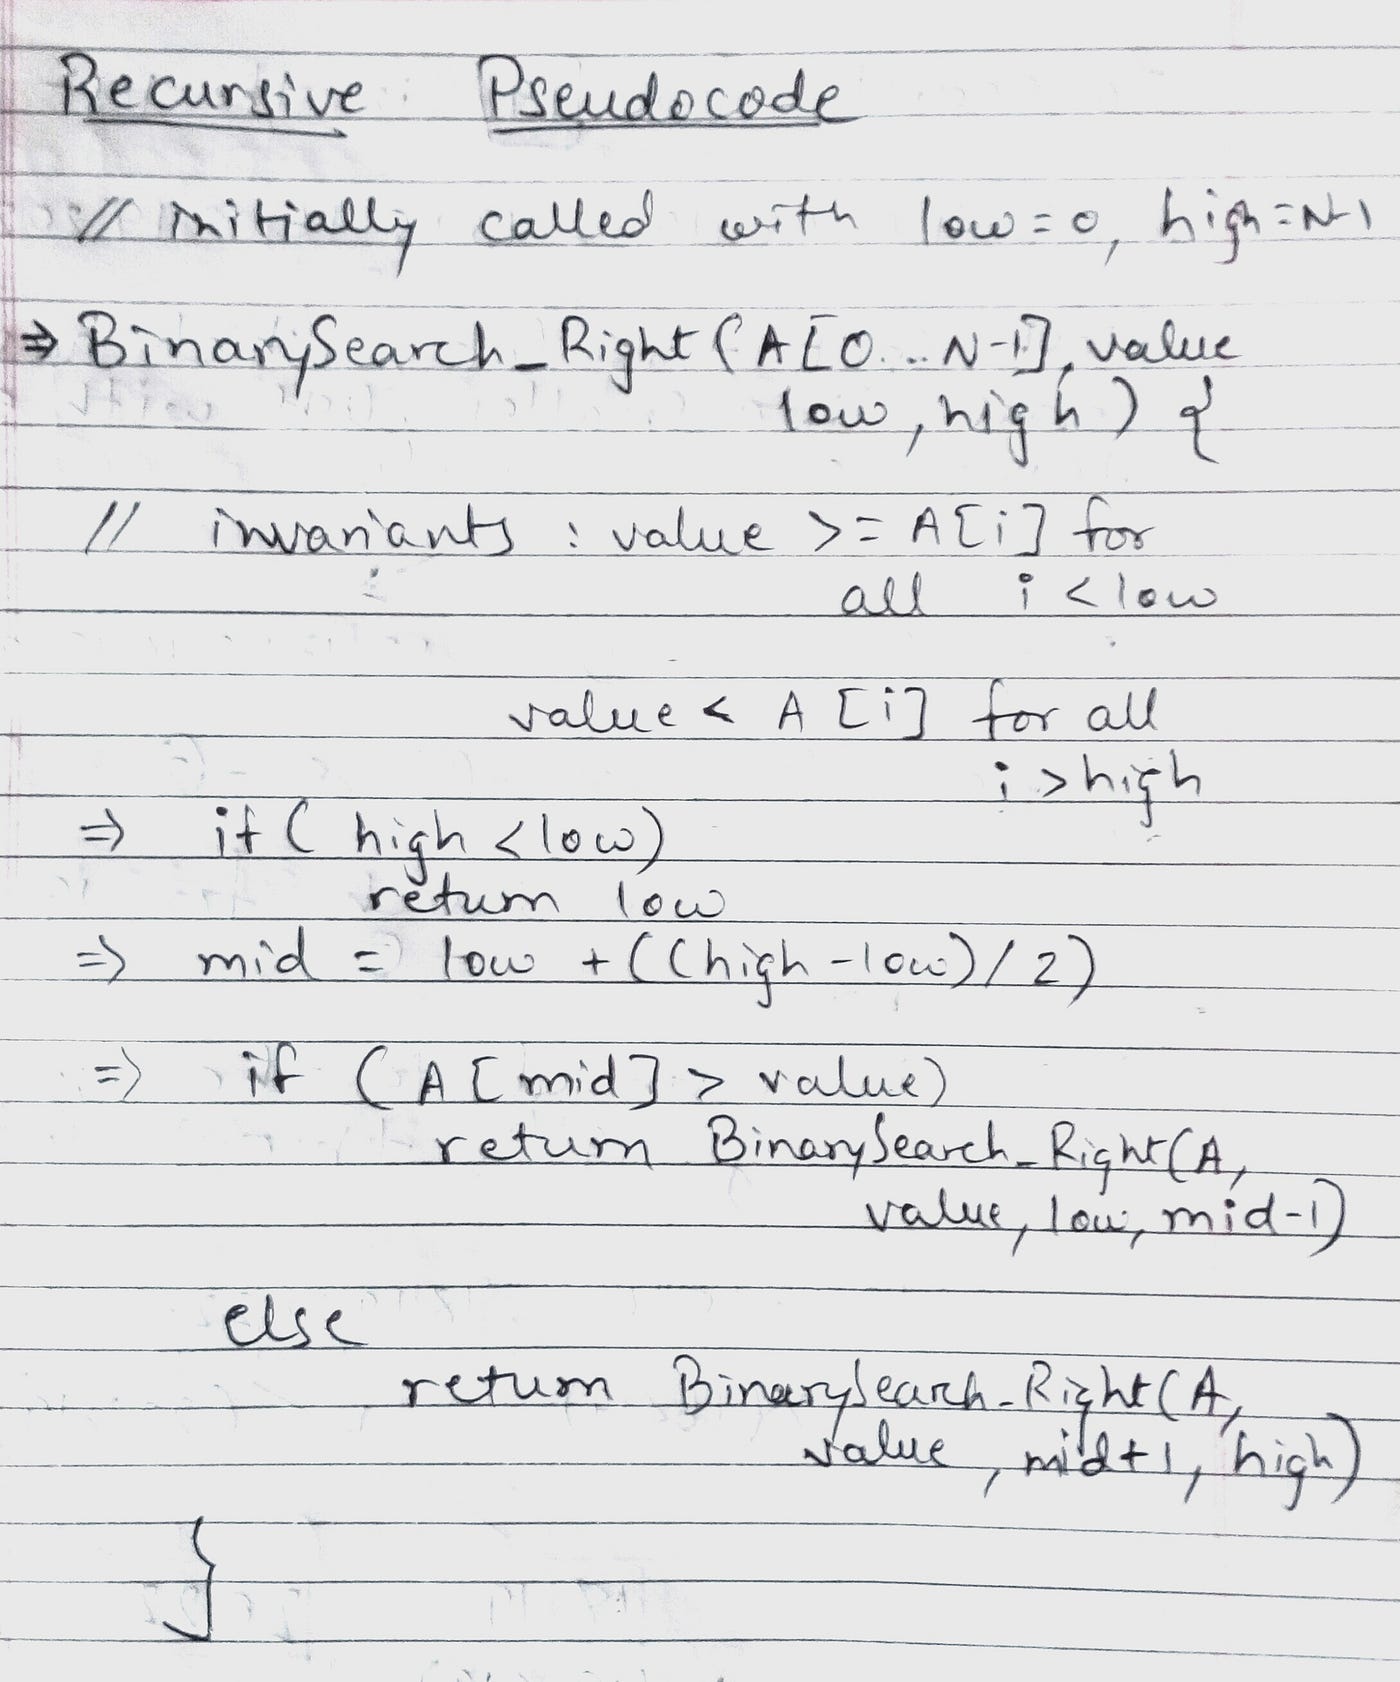 Recursive Pseudocode
// initially called with low=0, high=N-1
⇒ BinarySearch_Right(A[0...N-1], value
low, high) {
// invariants : value >= A[i] for
all i < low
value < A[i] for all
i > high
⇒ if( high < low)
return low
⇒ mid = low + ((high-low)/2)
⇒ if (A[mid] > value)
return BinarySearch_Right(A,
value, low, mid-1)
else
return BinarySearch_Right(A,
value, mid+1, high)
}